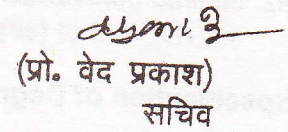 (प्रो. वेद प्रकाश)
सचिव